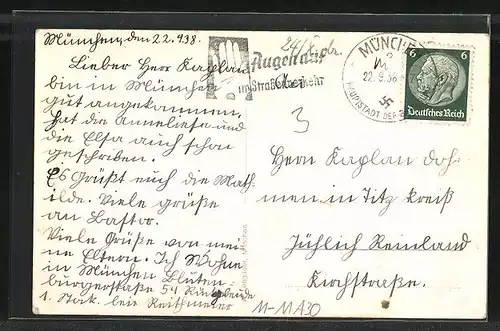 München, den 22.9.38.
Lieber Herr Kaplan
bin in München
gut angekommen.
Hat die Anneliese und
die Elsa auch schon
geschrieben.
Es Grüßt euch die Math-
ilde. Viele grüße
an Bastor.
Viele Grüße von mei-
ne Eltern. Ich Wohne
in München Bluten-
burgerstraße 54
1. Stock. bei Reithmeier
Augen auf
im Straßenverkehr
MÜNCHEN
22.9.38
HAUPTSTADT DER
6 6
Deutsches Reich
3
Herrn Kaplan Doh-
men in Titz Kreiß
Jühlich Reinland
Kirchstraße.
M-MA30